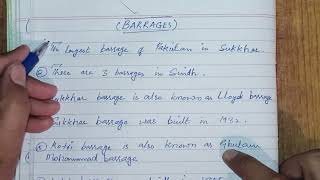 (BARRAGES)
The largest barrage of Pakistan is Sukkhar.
② There are 3 barrages in Sindh.
Sukkhar barrage is also known as Lloyd barrage
Sukkhar barrage was built in 1932.
⑤ Kotri barrage is also known as Ghulam
Mohammad barrage